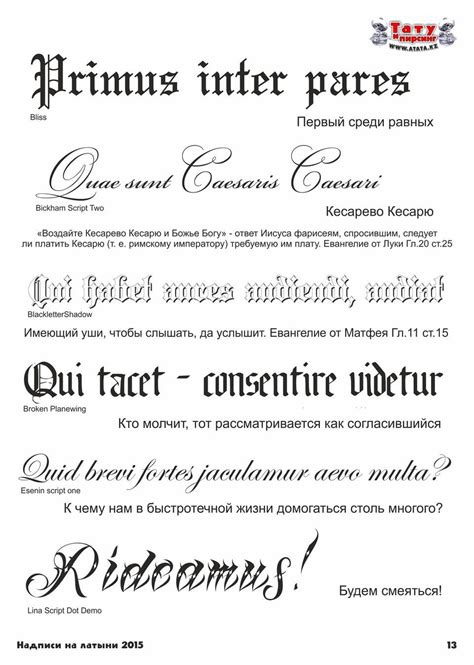 Тату
и пирсинг
WWW.ATATA.KZ
Primus inter pares
Bliss
Первый среди равных
Quae sunt Caesaris Caesari
Bickham Script Two
Кесарево Кесарю
«Воздайте Кесарево Кесарю и Божье Богу» - ответ Иисуса фарисеям, спросившим, следует
ли платить Кесарю (т. е. римскому императору) требуемую им плату. Евангелие от Луки Гл.20 ст.25
Qui habet aures audiendi, audiat
BlackletterShadow
Имеющий уши, чтобы слышать, да услышит. Евангелие от Матфея Гл.11 ст.15
Qui tacet - consentire videtur
Broken Planewing
Кто молчит, тот рассматривается как согласившийся
Quid brevi fortes jaculamur aevo multa?
Esenin script one
К чему нам в быстротечной жизни домогаться столь многого?
Rideamus!
Lina Script Dot Demo
Будем смеяться!
Надписи на латыни 2015
13